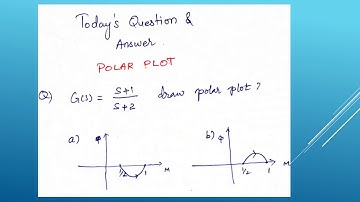 Today's Question &
Answer.
POLAR PLOT
Q) G(s) = S+1 / S+2 draw polar plot?
a) b)
φ φ
1/2 1 M 1/2 1 M